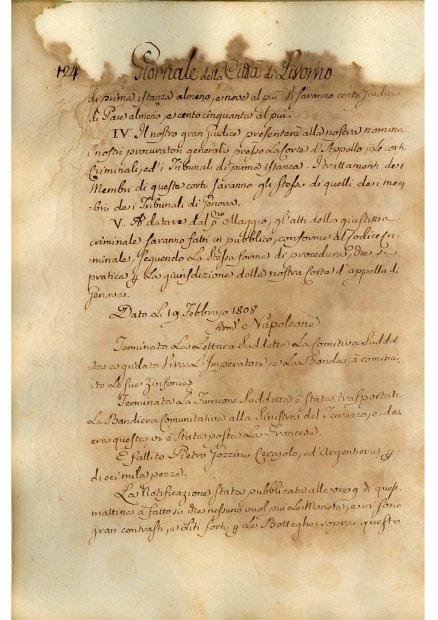 124 Giornale della Città di Livorno
di prima istanza almeno, e nove al più. Vi saranno cento Giudici
di Pace almeno, e cento cinquanta al più.
IV. Il nostro gran giudice presenterà alla nostra nomina
i nostri procuratori generali presso la Corte d'Appello, le corti
Criminali, ed i Tribunali di prima istanza. I trattamenti dei
Membri di queste corti saranno gli stessi di quelli dei mem
bri dei Tribunali di Genova.
V. A datare dal p.mo Maggio, gli atti della giustizia
criminale saranno fatti in pubblico, conforme al Codice Cri
minale, seguendo la stessa forma di procedura, che si
pratica p la giurisdizione della nostra Corte d'appello di
Genova.
Dato li 19 Febbraro 1808
Firm.o Napoleone
Terminato la Lettura Suddetta la Comitiva Suddet
ta à gridato Viva l'Imperatore, e la Banda, à comincia
to le sue Zinfonie.
Terminata la Funzione Suddetta è stata trasportata
la Bandiera Comunitativa alla Sinistra del Terrazzo, e do
era questa, vi è stata posta la Francese.
È fallito Pietro Cerajolo, ed Argentiere p
dieci mila pezze.
La Notificazione stata pubblicata alle ore 9 di questa
mattina à fatto si che nessuno vuol più le Monete, e vi sono
gran contrasti, e Liti forti p le Botteghe sopra questo